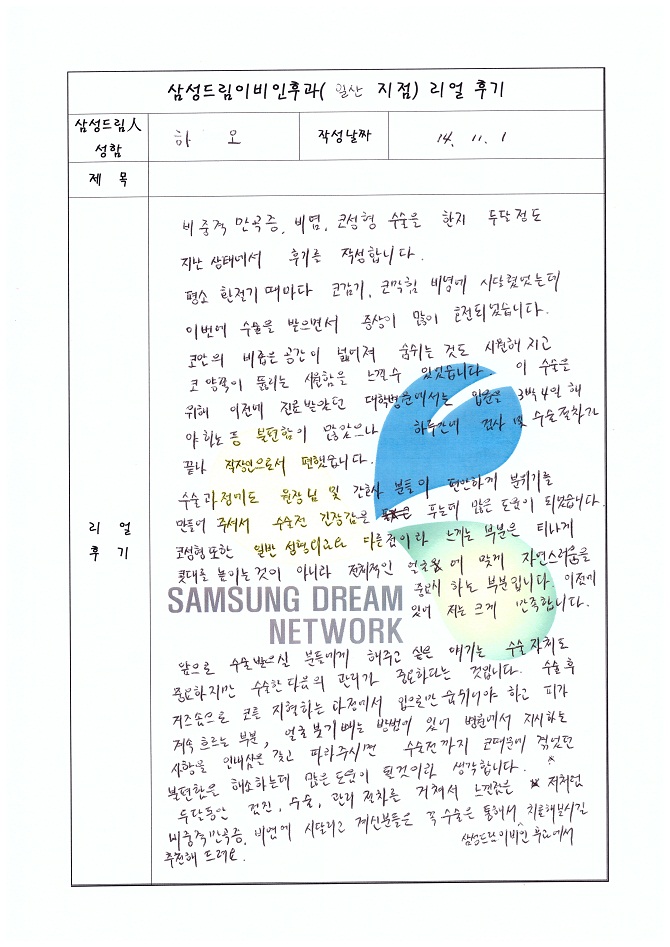 삼성드림이비인후과( 일산 지점) 리얼 후기
삼성드림人 성함
하 오
작성날짜
14. 11. 1
제 목
리 얼 후 기
비중격 만곡증, 비염, 코성형 수술을 한지 두달정도
지난 상태에서 후기를 작성합니다.
평소 환절기 때마다 코감기, 코막힘 비염에 시달렸었는데
이번에 수술을 받으면서 증상이 많이 호전되었습니다.
코안의 비좁은 공간이 넓어져 숨쉬는 것도 시원해지고
코 양쪽이 뚫리는 시원함을 느낄수 있었습니다. 이 수술을
위해 이전에 진료받았던 대학병원에서는 입원은 3박4일 해
야 하는 등 불편함이 많았으나 하루만에 검사 및 수술절차가
끝나 직장인으로서 편했습니다.
수술과정에도 원장님 및 간호사 분들이 편안하게 분위기를
만들어 주셔서 수술전 긴장감은 푸는데 많은 도움이 되었습니다.
코성형또한 일반 성형외과와 다른점이라 느끼는 부분은 티나게
콧대를 높이는것이 아니라 전체적인 얼굴에 맞게 자연스러움을
중요시 하는 부분입니다. 이점에
있어 저는 크게 만족합니다.
SAMSUNG DREAM
NETWORK
앞으로 수술받으실 분들에게 해주고 싶은 얘기는 수술자체도
중요하지만 수술한 다음의 관리가 중요하다는 것입니다. 수술후
거즈솜으로 코를 지혈하는 과정에서 입으로만 숨쉬어야 하고 피가
계속 흐르는 부분, 얼굴 붓기 빼는 방법에 있어 병원에서 지시하는
사항을 인내심을 갖고 따라주시면 수술전까지 코때문에 겪었던
불편함은 해소하는데 많은 도움이 될것이라 생각합니다.
두달동안 검진, 수술, 관리 절차를 거쳐서 느낀점은 저처럼
비중격만곡증, 비염에 시달리고 계신분들은 꼭 수술은 통해서 치료해보시길
삼성드림이비인후과에서
추천해 드려요.